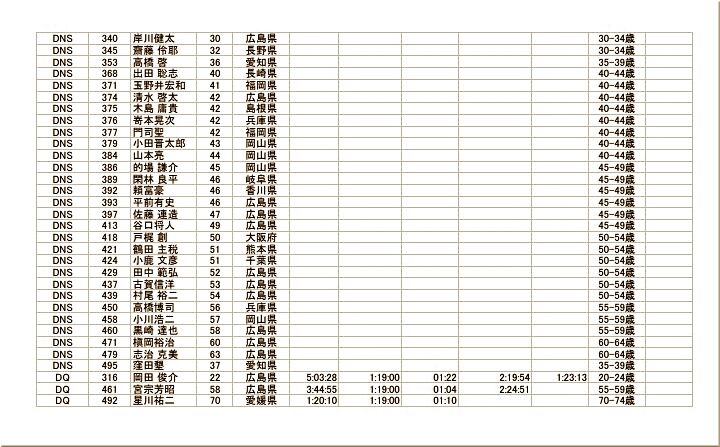 DNS 340 岸川健太 30 広島県 30-34歳
DNS 345 齋藤 伶耶 32 長野県 30-34歳
DNS 353 高橋 啓 36 愛知県 35-39歳
DNS 368 出田 聡志 40 長崎県 40-44歳
DNS 371 玉野井宏和 41 福岡県 40-44歳
DNS 374 清水 啓太 42 広島県 40-44歳
DNS 375 木島 庸貴 42 島根県 40-44歳
DNS 376 嵜本晃次 42 兵庫県 40-44歳
DNS 377 門司聖 42 福岡県 40-44歳
DNS 379 小田晋太郎 43 岡山県 40-44歳
DNS 384 山本亮 44 岡山県 40-44歳
DNS 386 的場 謙介 45 岡山県 45-49歳
DNS 389 関林 良平 46 岐阜県 45-49歳
DNS 392 頼富豪 46 香川県 45-49歳
DNS 393 平前有史 46 広島県 45-49歳
DNS 397 佐藤 連造 47 広島県 45-49歳
DNS 413 谷口将人 49 広島県 45-49歳
DNS 418 戸梶 創 50 大阪府 50-54歳
DNS 421 鶴田 主税 51 熊本県 50-54歳
DNS 424 小鹿 文彦 51 千葉県 50-54歳
DNS 429 田中 範弘 52 広島県 50-54歳
DNS 437 古賀信洋 53 広島県 50-54歳
DNS 439 村尾 裕二 54 広島県 50-54歳
DNS 450 高橋博司 56 兵庫県 55-59歳
DNS 458 小川浩二 57 岡山県 55-59歳
DNS 460 黒崎 達也 58 広島県 55-59歳
DNS 471 槇岡裕治 60 広島県 60-64歳
DNS 479 志治 克美 63 広島県 60-64歳
DNS 495 窪田塁 37 愛知県 35-39歳
DQ 316 岡田 俊介 22 広島県 5:03:28 1:19:00 01:22 2:19:54 1:23:13 20-24歳
DQ 461 宮宗芳昭 58 広島県 3:44:55 1:19:00 01:04 2:24:51 55-59歳
DQ 492 星川祐二 70 愛媛県 1:20:10 1:19:00 01:10 70-74歳